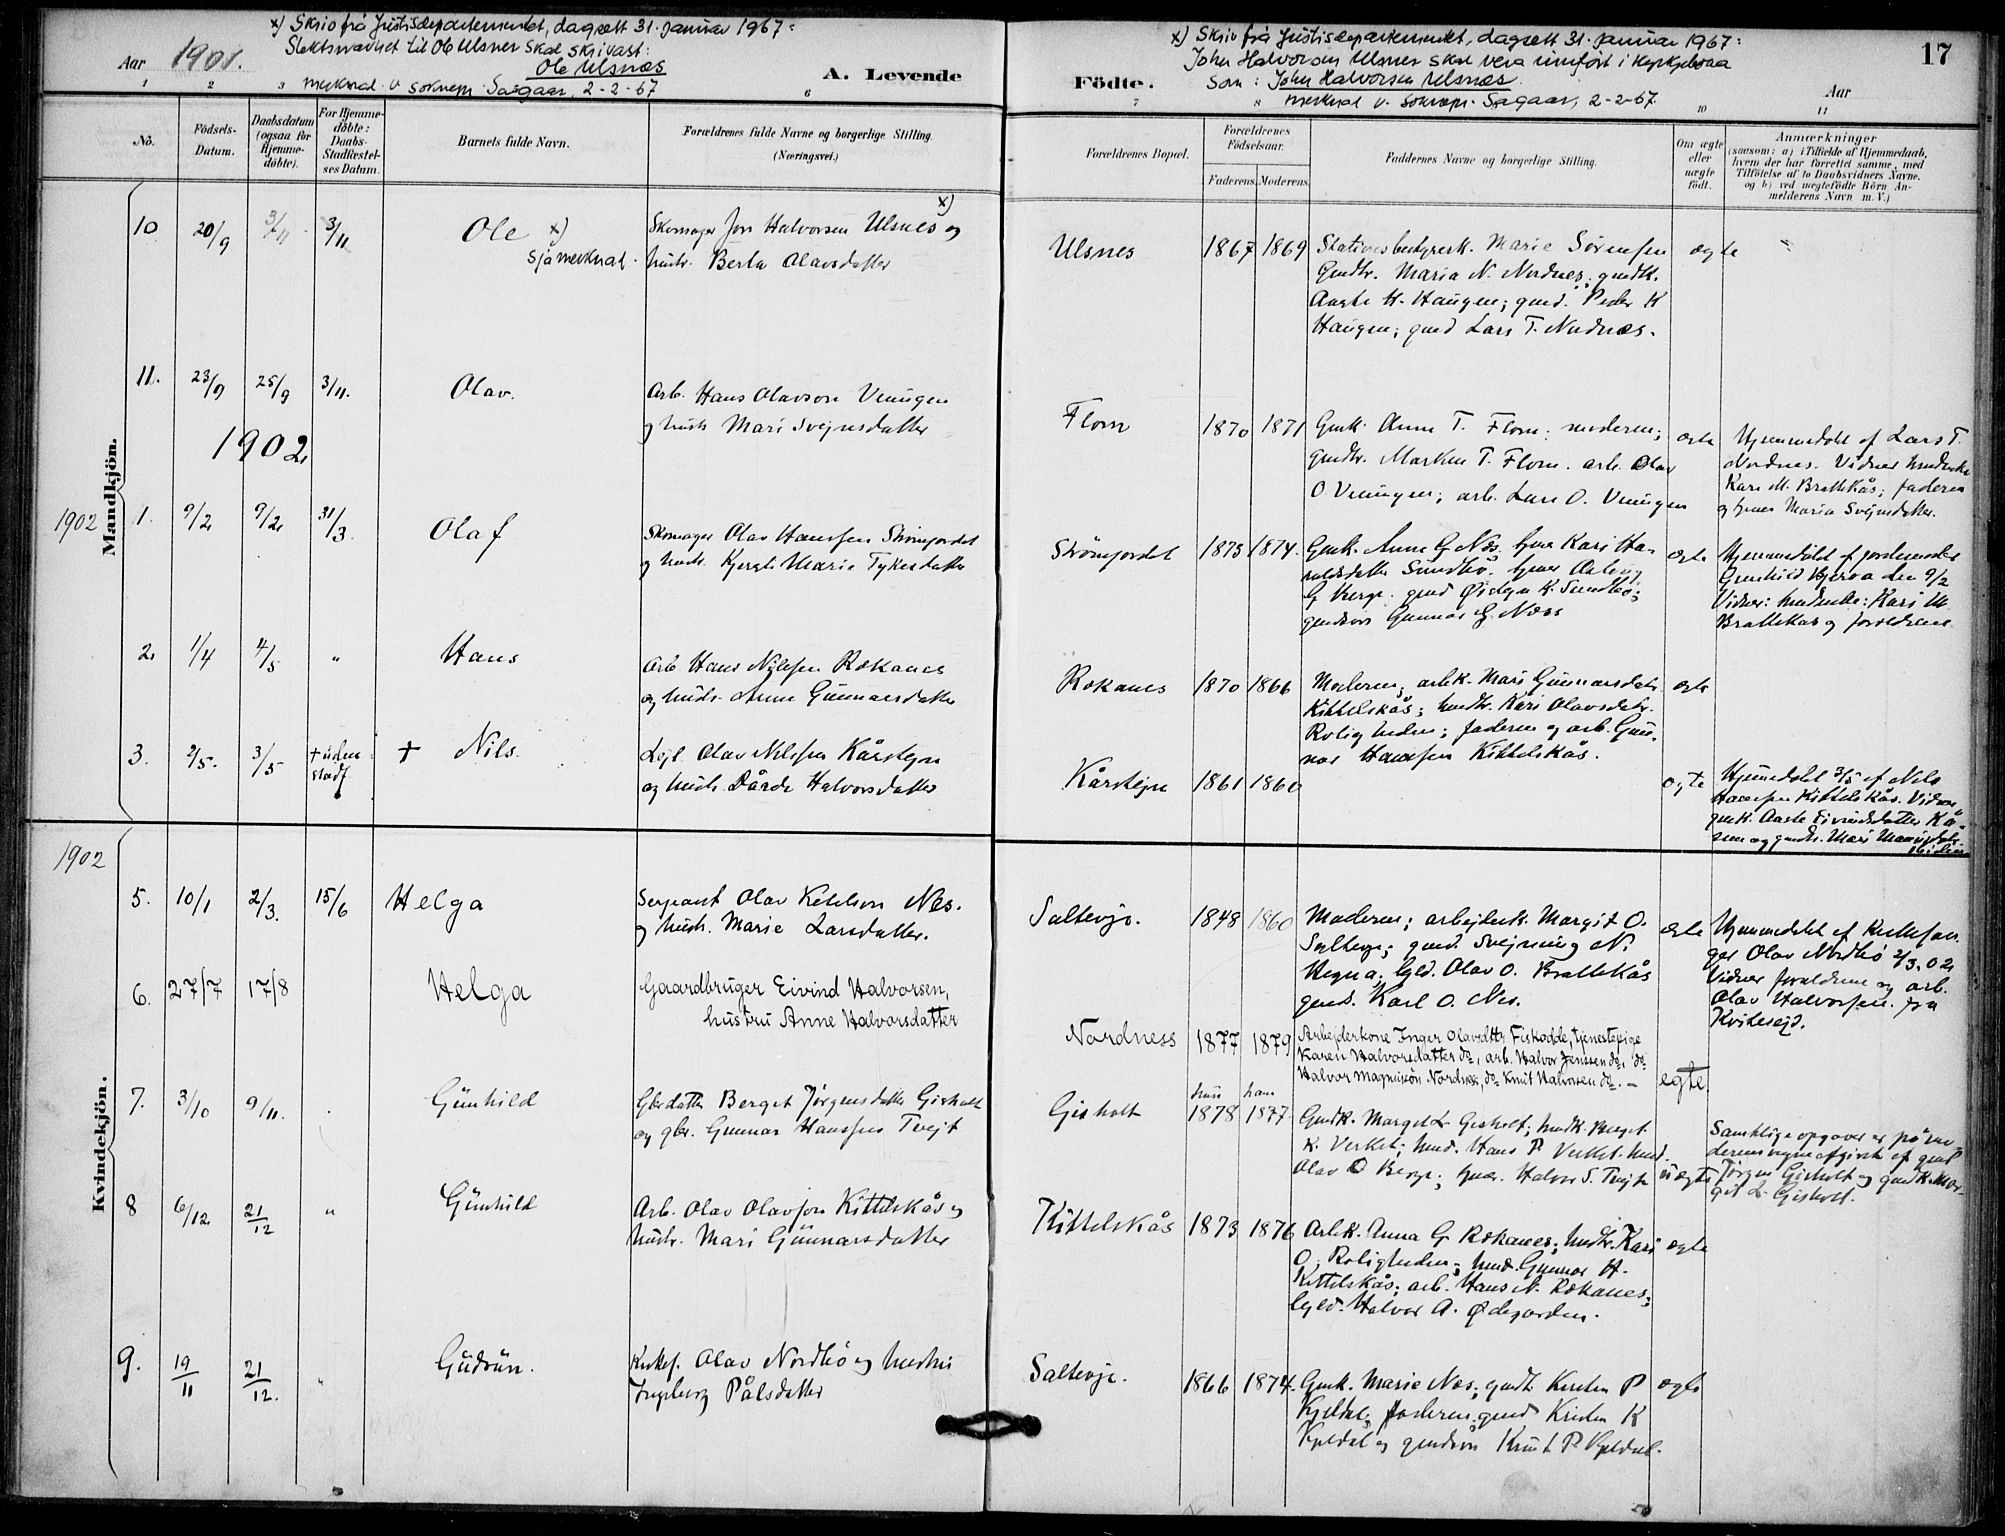 x) Skriv frå Justisdepartementet, dagsett 31. januar 1967:
Slektsnavnet til Ole Ulsnes skal skrivast:
Ole Ulsnæs
Aar 1901.
merknad v. soknepr. Sagaar, 2-2-67
A. Levende
x) Skriv frå Justisdepartementet, dagsett 31. januar 1967:
John Halvorsen Ulsnes skal vera innført i
som: John Halvorsen Ulsnæs.
Födte.
merknad v. soknepr. Sagaar, 2-2-67.
Aar
17
1 2 3 6 7 8 10 11
No.
Födsels-
Datum.
Daabsdatum
(ogsaa for
Hjemme-
döbte).
For Hjemme-
döbte:
Daabs-
Stadfæstel-
ses Datum.
Barnets fulde Navn.
Forældrenes fulde Navne og borgerlige Stilling.
(Næringsvei.)
Forældrenes Bopæl.
Forældrenes
Födselsaar.
Faderens. Moderens.
Faddernes Navne og borgerlige Stilling.
Om ægte
eller
uægte
født.
Anmærkninger
(saasom: a) i Tilfælde af Hjemmedaab,
hvem der har forrettet samme, med
Tilföielse af to Daabsvidners Navne.
og b) ved uægtefödte Börn An-
melderens Navn m. V.)
Mandkjön.
10 20/9 3/11 3/11 Ole x)
sjå merknad.
x)
Skomager Jon Halvorsen Ulsnes og
hustr. Berta Olavsdatter
Ulsnes 1867 1869
Marie Sörensen
Gmdtr. Maria N. Nordnes; gmdk.
Aaste H. Haugen; gmd. Peder K
Haugen; gmd Lars T. Nordnæs.
ægte
11. 23/9 25/9 3/11. Olav.
Arb. Hans Olavson Vningen
og hustr Mari Svejnsdatter
Flom 1870 1871
Gmk. Anne T. Flom; moderen;
gmdtr. Marken T. Flom. arb. Olav
O Vningen; arb. Lars O. Vningen
ægte
Hjemmedøbt af Lars T.
Nordnes. Vidner
Kari M. Brattekås; faderen
og Maria Svejnsdatter.
1902
1902 1. 9/2 9/2 31/3 Olaf
Skomager Olav Hanssen Strömjordet
og hustr. Marie Tykesdatter
Strömjordet 1873 1874.
Gmk. Anne G Næs. Kari Ha-
raldsdatter Sundbö.
G Berge. gmd K. Sundbö;
gmdsøn Gunnar G. Næss
ægte
Hjemmedöbt af jordemoder
Gunhild den 9/2
Vidner: Kari M.
Brattekås og forældrene
2. 1/4 4/5 " Hans
Arb Hans Nilssen Rokanes
og hustr. Anne Gunnarsdatter
Rokanes 1870 1866
Moderen; arbk. Mari Gunnarsdatr.
Kittelskås; Kari Olavsdatr.
Roligheden; faderen og arb. Gun-
nar Hanssen Kittelskås.
ægte
3. 2/5. 3/5 + uden
stadf + Nils.
Olav Nilssen Kårstejn
og hustr. Dårde Halvorsdatter
Kårstejn 1861 1860
ægte
Hjemmedøbt 3/5 af Nils
Hanssen Kittelskås. Vidner
gmk. Aaste Eivindsdatter
og gmdtr. Mari
1902
Kvindekjön.
5. 10/1 2/3. 15/6 Helga
Sergeant Olav Ketilson Nes.
og hustr. Marie Larsdatter.
Saltevje. 1848 1860
Moderen; arbejderk. Margit O.
Saltevje; gmd. Svejnung N.
Olav O. Brattekås
gmd. Karl O. Nes.
ægte
Hjemmedöbt af Kirkesan-
ger Olav Nordbö 2/3.02
Vidner forældrene og arb.
Olav Halvorsen fra
Kviteseid.
6. 27/7 17/8 Helga
Gaardbruger Eivind Halvorsen,
hustru Anne Halvorsdatter
Nordness 1877 1879
Arbejderkone Inger Olavsdtr Fiskodde, tjenestepige
Karen Halvorsdatter do, arb. Halvor Jenssen do, do
Halvor Magnusson Nordnes, do Knut Halvorsen do. –
egte
7. 3/10 9/11. Gunhild
Gbrdatter Berget Jörgensdatter Gisholt
og gbr. Gunnar Hanssen Tvejt
Gisholt hun 1878 han 1877
Gmdk. Margit L. Gisholt; Berget
K. Verket; Hans P Verket.
Olav O Berge; Halvor S. Tvejt
uægte
Samtlige opgaver er på mo-
derens vegne afgivet af gmd
Jörgen Gisholt og gmdk. Mar-
git L. Gisholt.
8 6/12 21/12 " Gunhild
Arb. Olav Olavsson Kittelskås og
hustr. Mari Gunnarsdatter
Kittelskås 1873 1876
Arbk. Anna G. Rokanes; Kari
O. Roligheden; Gunnar H.
Kittelskås; arb. Hans N. Rokanes;
Halvor A. Ødegarden.
ægte
9. 19/11 21/12. " Gudrun.
Kirkes. Olav Nordbö og hustru
Ingeborg Pålsdatter
Saltevje. 1866 1874.
Gmk. Marie Nes; Kirsten P
Kjeldal; faderen; gmd K
Kjeldal og gmdsön Knut P. Kjeldal.
ægte